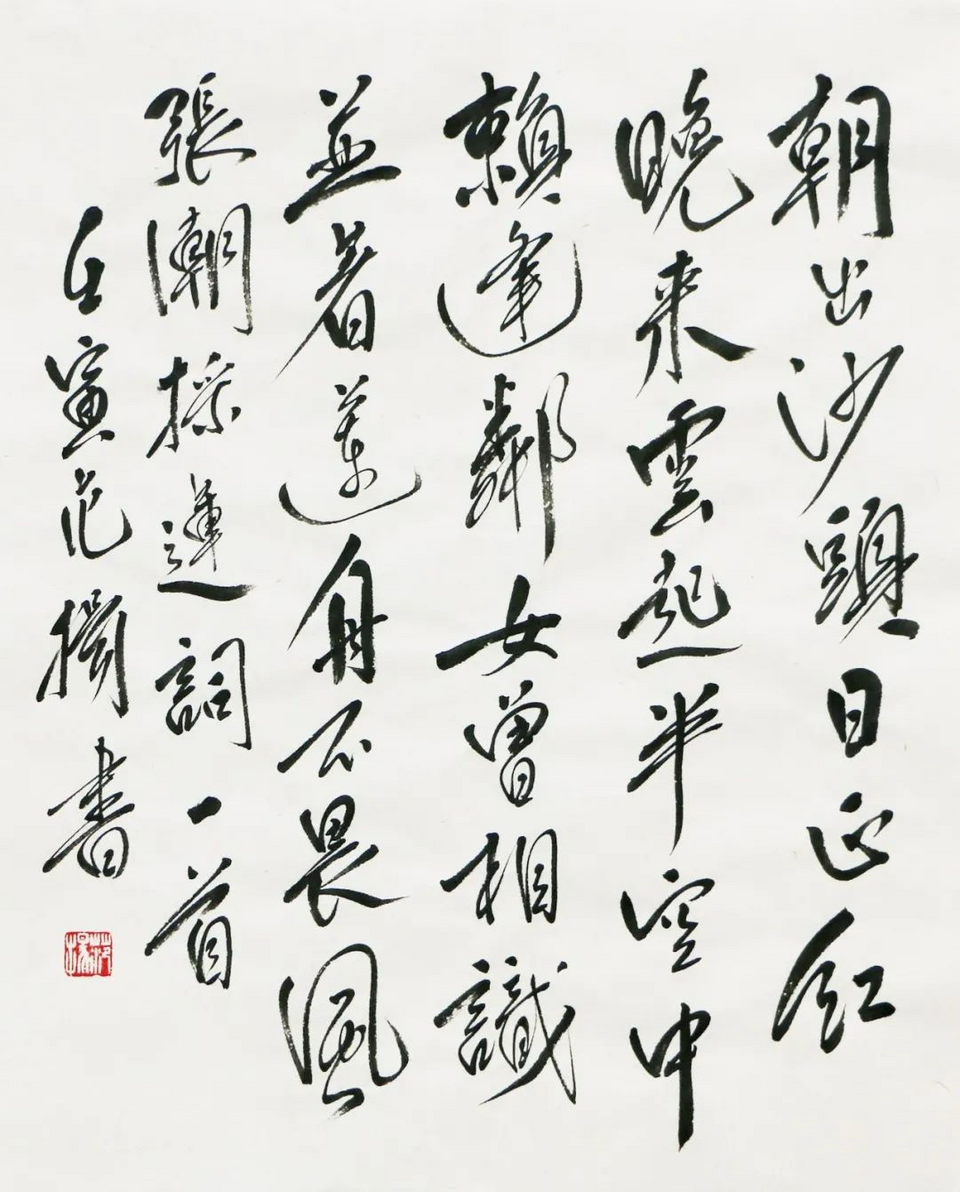 朝出沙頭日正紅
晚来雲起半空中
賴逢鄰女曾相識
並着蓮舟不畏風
張潮採蓮詞一首
壬寅范揚書
范揚